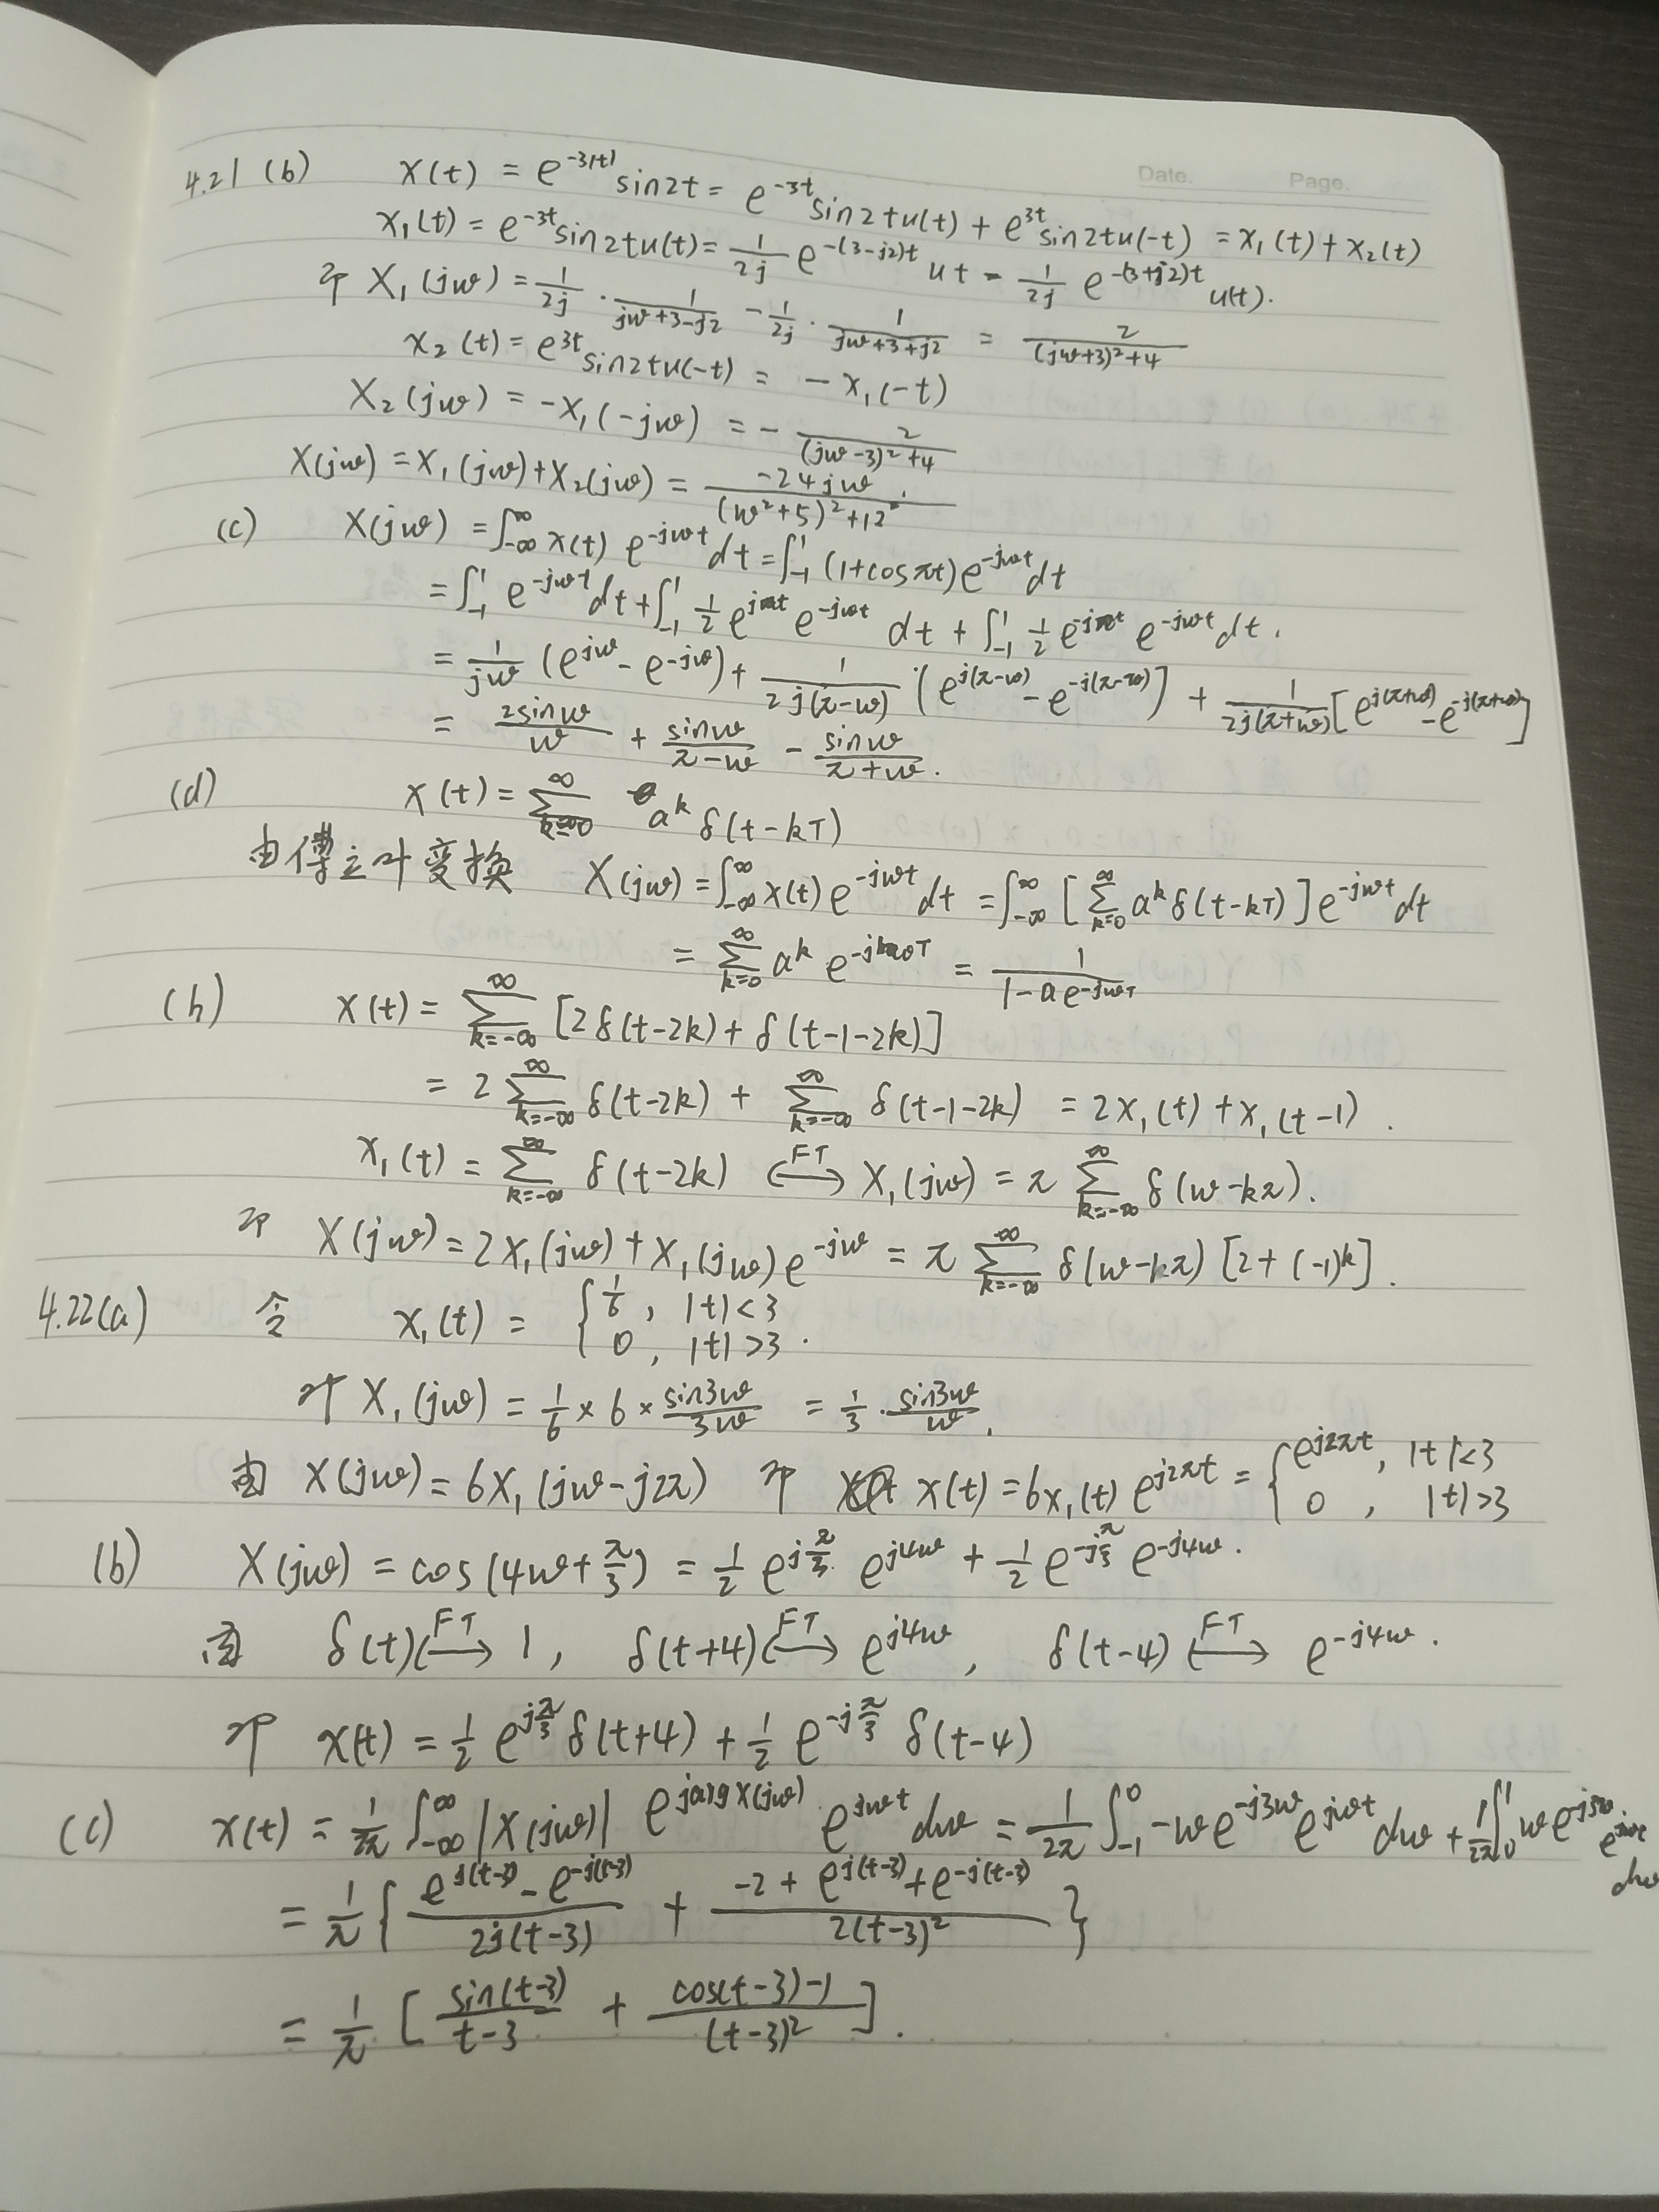 Date. Page.
4.21 (b) x(t) = e^{-3|t|} sin2t = e^{-3t} sin2tu(t) + e^{3t} sin2tu(-t) = x₁(t) + x₂(t)
x₁(t) = e^{-3t} sin2tu(t) = \frac{1}{2j} e^{-(3-j2)t} ut - \frac{1}{2j} e^{-(3+j2)t} u(t).
X₁(jω) = \frac{1}{2j} · \frac{1}{jω+3-j2} - \frac{1}{2j} · \frac{1}{jω+3+j2} = \frac{2}{(jω+3)²+4}
x₂(t) = e^{3t} sin2tu(-t) = -x₁(-t)
X₂(jω) = -X₁(-jω) = -\frac{2}{(jω-3)²+4}
X(jω) = X₁(jω) + X₂(jω) = \frac{-24jω}{(ω²+5)²+12²}.
(c) X(jω) = ∫_{-∞}^{∞} x(t) e^{-jωt} dt = ∫_{-1}^{1} (1+cosπt) e^{-jωt} dt
= ∫_{-1}^{1} e^{-jωt} dt + ∫_{-1}^{1} \frac{1}{2} e^{jπt} e^{-jωt} dt + ∫_{-1}^{1} \frac{1}{2} e^{-jπt} e^{-jωt} dt.
= \frac{1}{jω} (e^{jω} - e^{-jω}) + \frac{1}{2j(π-ω)} [e^{j(π-ω)} - e^{-j(π-ω)}] + \frac{1}{2j(π+ω)} [e^{j(π+ω)} - e^{-j(π+ω)}]
= \frac{2sinω}{ω} + \frac{sinω}{π-ω} - \frac{sinω}{π+ω}.
(d) x(t) = \sum_{k=0}^{∞} a^k δ(t-kT)
由傅立叶变换 X(jω) = ∫_{-∞}^{∞} x(t) e^{-jωt} dt = ∫_{-∞}^{∞} [\sum_{k=0}^{∞} a^k δ(t-kT)] e^{-jωt} dt
= \sum_{k=0}^{∞} a^k e^{-jkωT} = \frac{1}{1-ae^{-jωT}}
(h) x(t) = \sum_{k=-∞}^{∞} [2δ(t-2k) + δ(t-1-2k)]
= 2 \sum_{k=-∞}^{∞} δ(t-2k) + \sum_{k=-∞}^{∞} δ(t-1-2k) = 2x₁(t) + x₁(t-1).
x₁(t) = \sum_{k=-∞}^{∞} δ(t-2k) \overset{FT}{⟷} X₁(jω) = π \sum_{k=-∞}^{∞} δ(ω-kπ).
X(jω) = 2X₁(jω) + X₁(jω) e^{-jω} = π \sum_{k=-∞}^{∞} δ(ω-kπ) [2+(-1)^k].
4.22(a) 令 x₁(t) = { \frac{1}{6}, |t|<3
0, |t|>3.
X₁(jω) = \frac{1}{6} × 6 × \frac{sin3ω}{3ω} = \frac{1}{3} · \frac{sin3ω}{ω}.
由 X(jω) = 6X₁(jω-j2π) x(t) = 6x₁(t) e^{j2πt} = { e^{j2πt}, |t|<3
0, |t|>3
(b) X(jω) = cos(4ω+\frac{π}{3}) = \frac{1}{2} e^{j\frac{π}{3}} e^{j4ω} + \frac{1}{2} e^{-j\frac{π}{3}} e^{-j4ω}.
由 δ(t) \overset{FT}{⟷} 1, δ(t+4) \overset{FT}{⟷} e^{j4ω}, δ(t-4) \overset{FT}{⟷} e^{-j4ω}.
x(t) = \frac{1}{2} e^{j\frac{π}{3}} δ(t+4) + \frac{1}{2} e^{-j\frac{π}{3}} δ(t-4)
(c) x(t) = \frac{1}{2π} ∫_{-∞}^{∞} |X(jω)| e^{jargX(jω)} e^{jωt} dω = \frac{1}{2π} ∫_{-1}^{0} -ωe^{-j3ω} e^{jωt} dω + \frac{1}{2π} ∫_{0}^{1} ωe^{-j3ω} e^{jωt} dω
= \frac{1}{π} { \frac{e^{j(t-3)} - e^{-j(t-3)}}{2j(t-3)} + \frac{-2 + e^{j(t-3)} + e^{-j(t-3)}}{2(t-3)²} }
= \frac{1}{π} [ \frac{sin(t-3)}{t-3} + \frac{cos(t-3)-1}{(t-3)²} ].